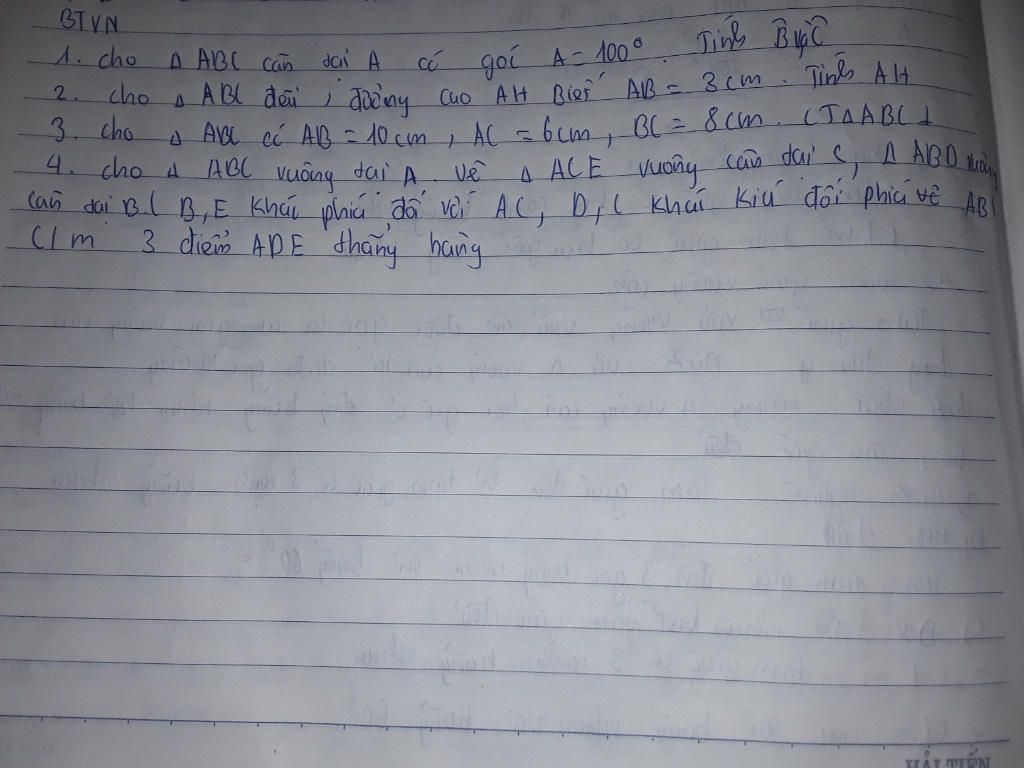 BTVN
1. cho Δ ABC cân dại A có góc A = 100°. Tính B và C
2. cho Δ ABC đều, đường cao AH Biết AB = 3cm. Tính AH
3. cho Δ ABC có AB = 10cm, AC = 6cm, BC = 8cm. CT Δ ABC ⊥
4. cho Δ ABC vuông dại A. vẽ Δ ACE vuông cân dại C, Δ ABD vuông
cân dại B. ( B, E khác phía đối với AC, D, C khác kiú đối phía vẽ AB(
C/m 3 điểm ADE thẳng hàng
HẢI TIẾN